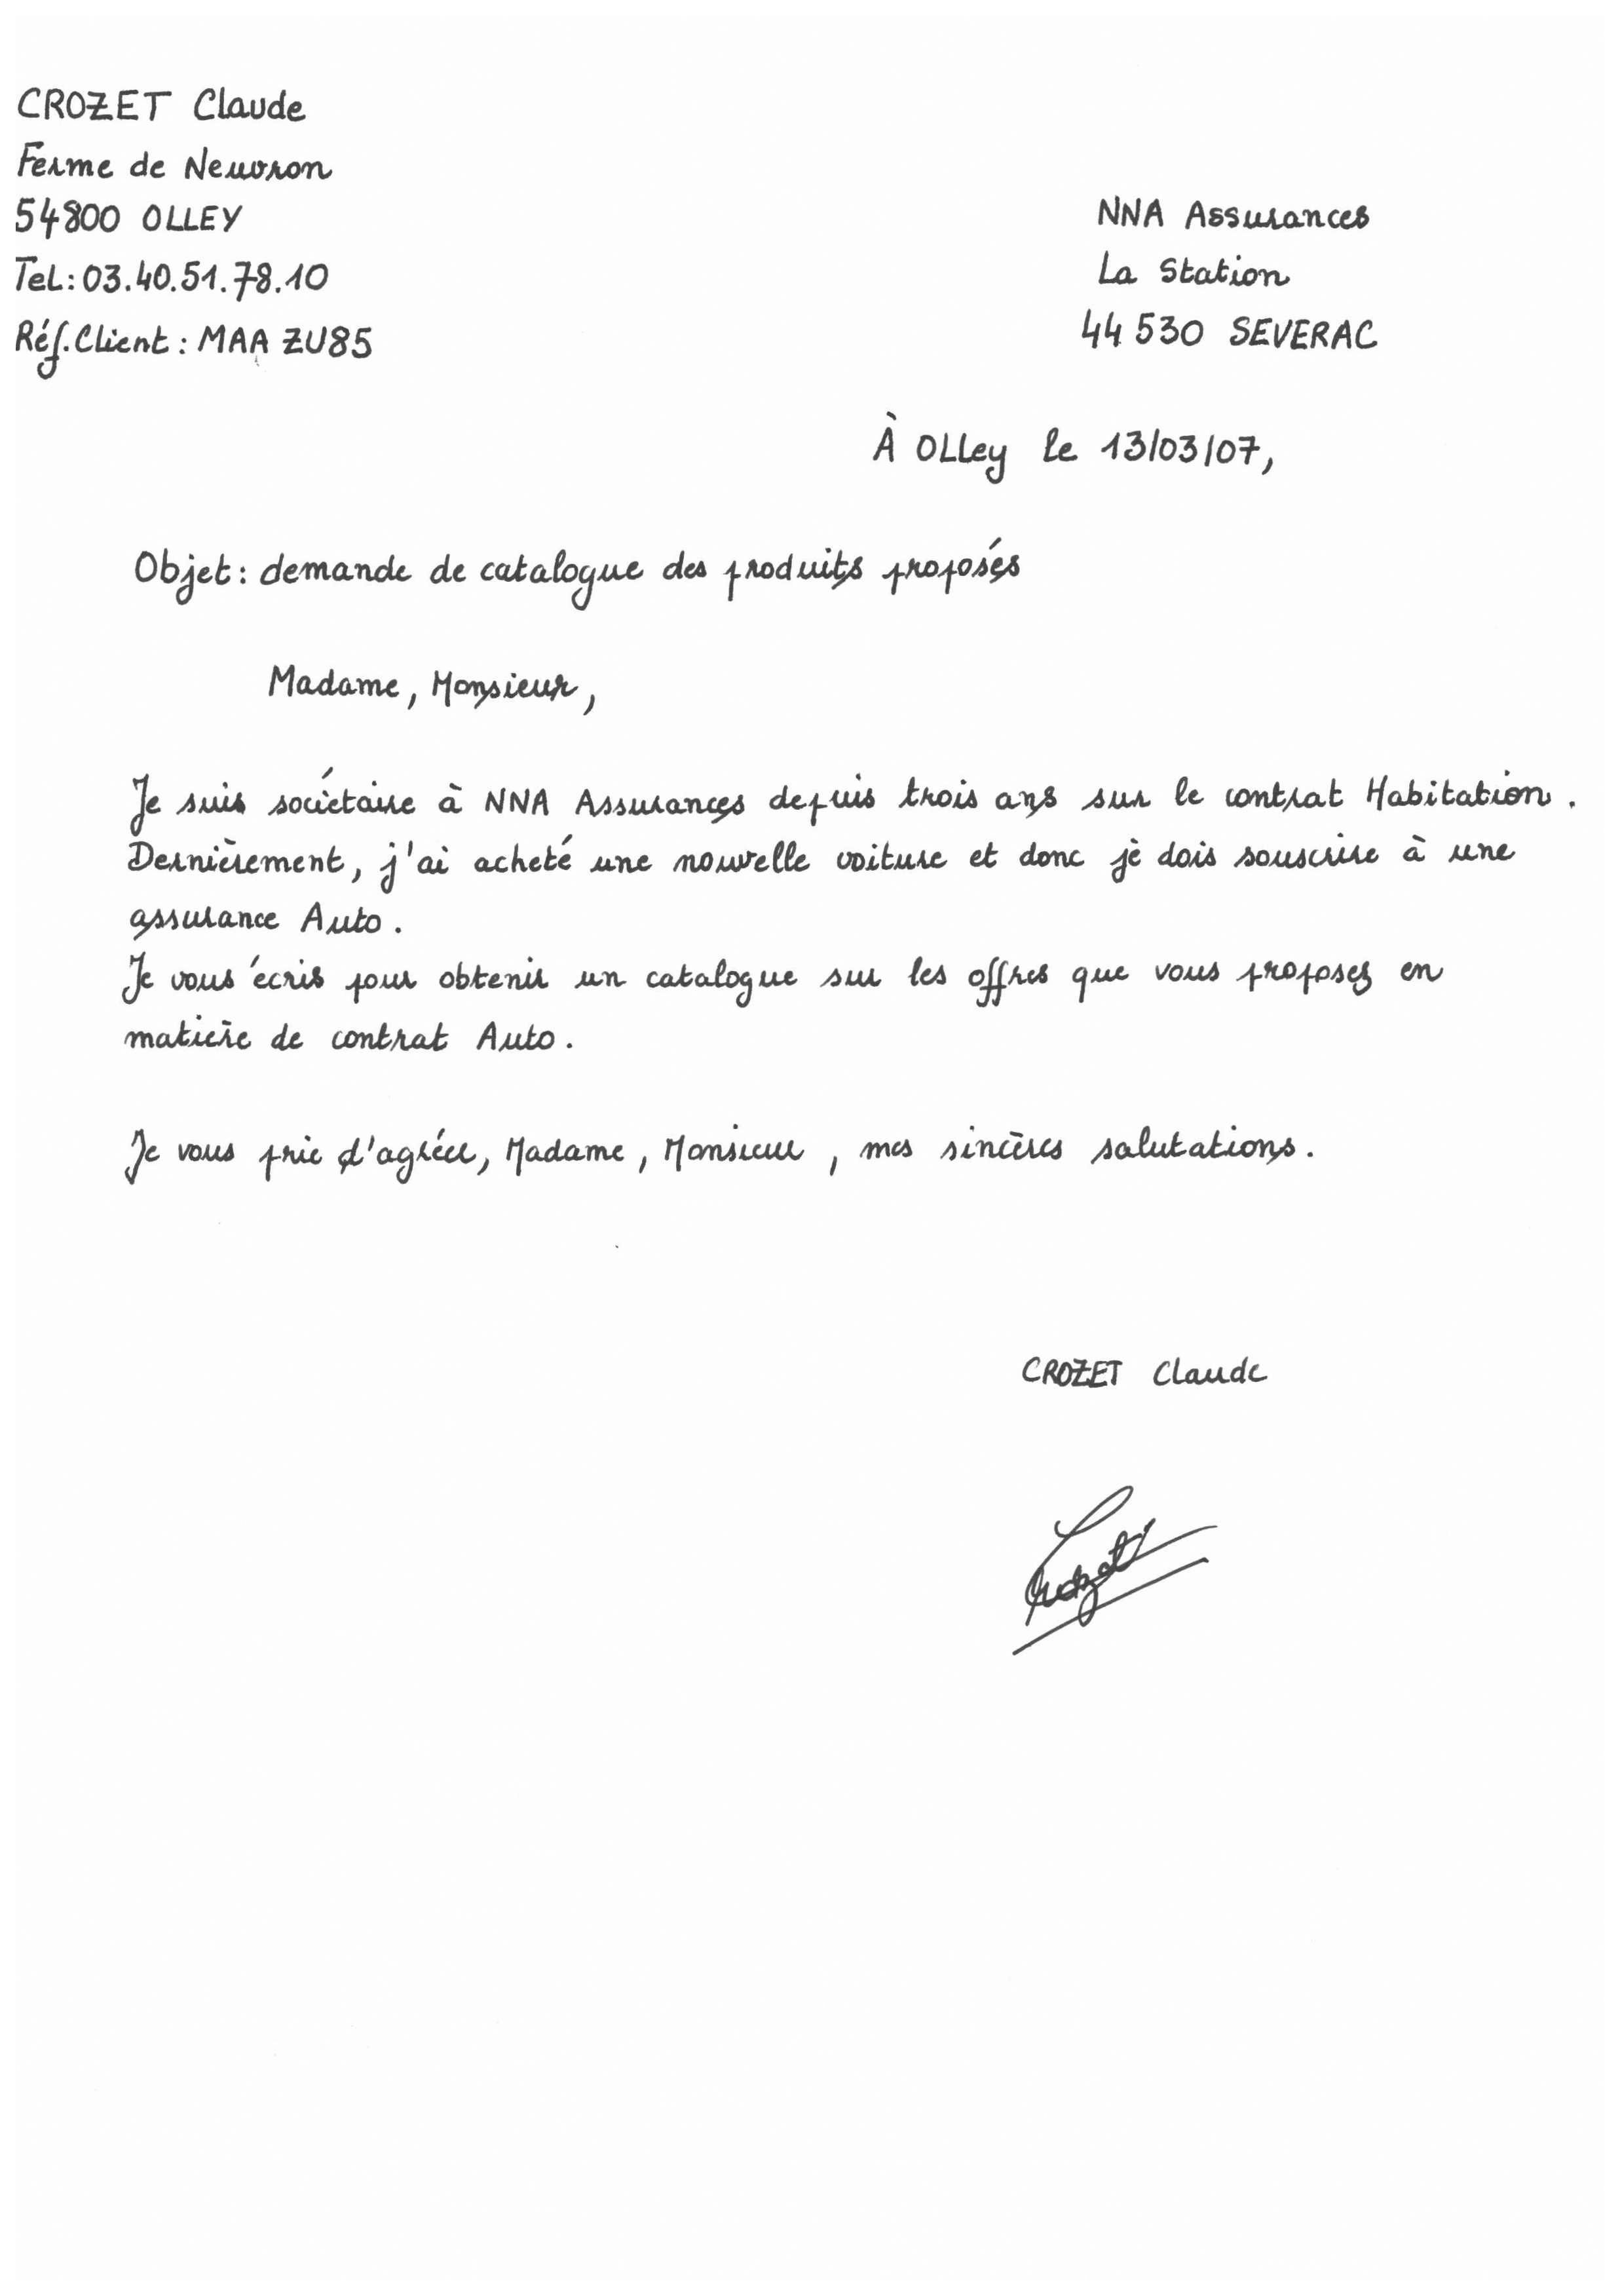 CROZET Claude
Ferme de Neuvron
54800 OLLEY
Tel: 03.40.51.78.10
Réf. Client : MAA ZU85
NNA Assurances
La Station
44 530 SEVERAC
À Olley le 13/03/07,
Objet : demande de catalogue des produits proposés
Madame, Monsieur,
Je suis sociétaire à NNA Assurances depuis trois ans sur le contrat Habitation.
Dernièrement, j'ai acheté une nouvelle voiture et donc je dois souscrire à une
assurance Auto.
Je vous écris pour obtenir un catalogue sur les offres que vous proposez en
matière de contrat Auto.
Je vous prie d'agréer, Madame, Monsieur, mes sincères salutations.
CROZET Claude
Crozet